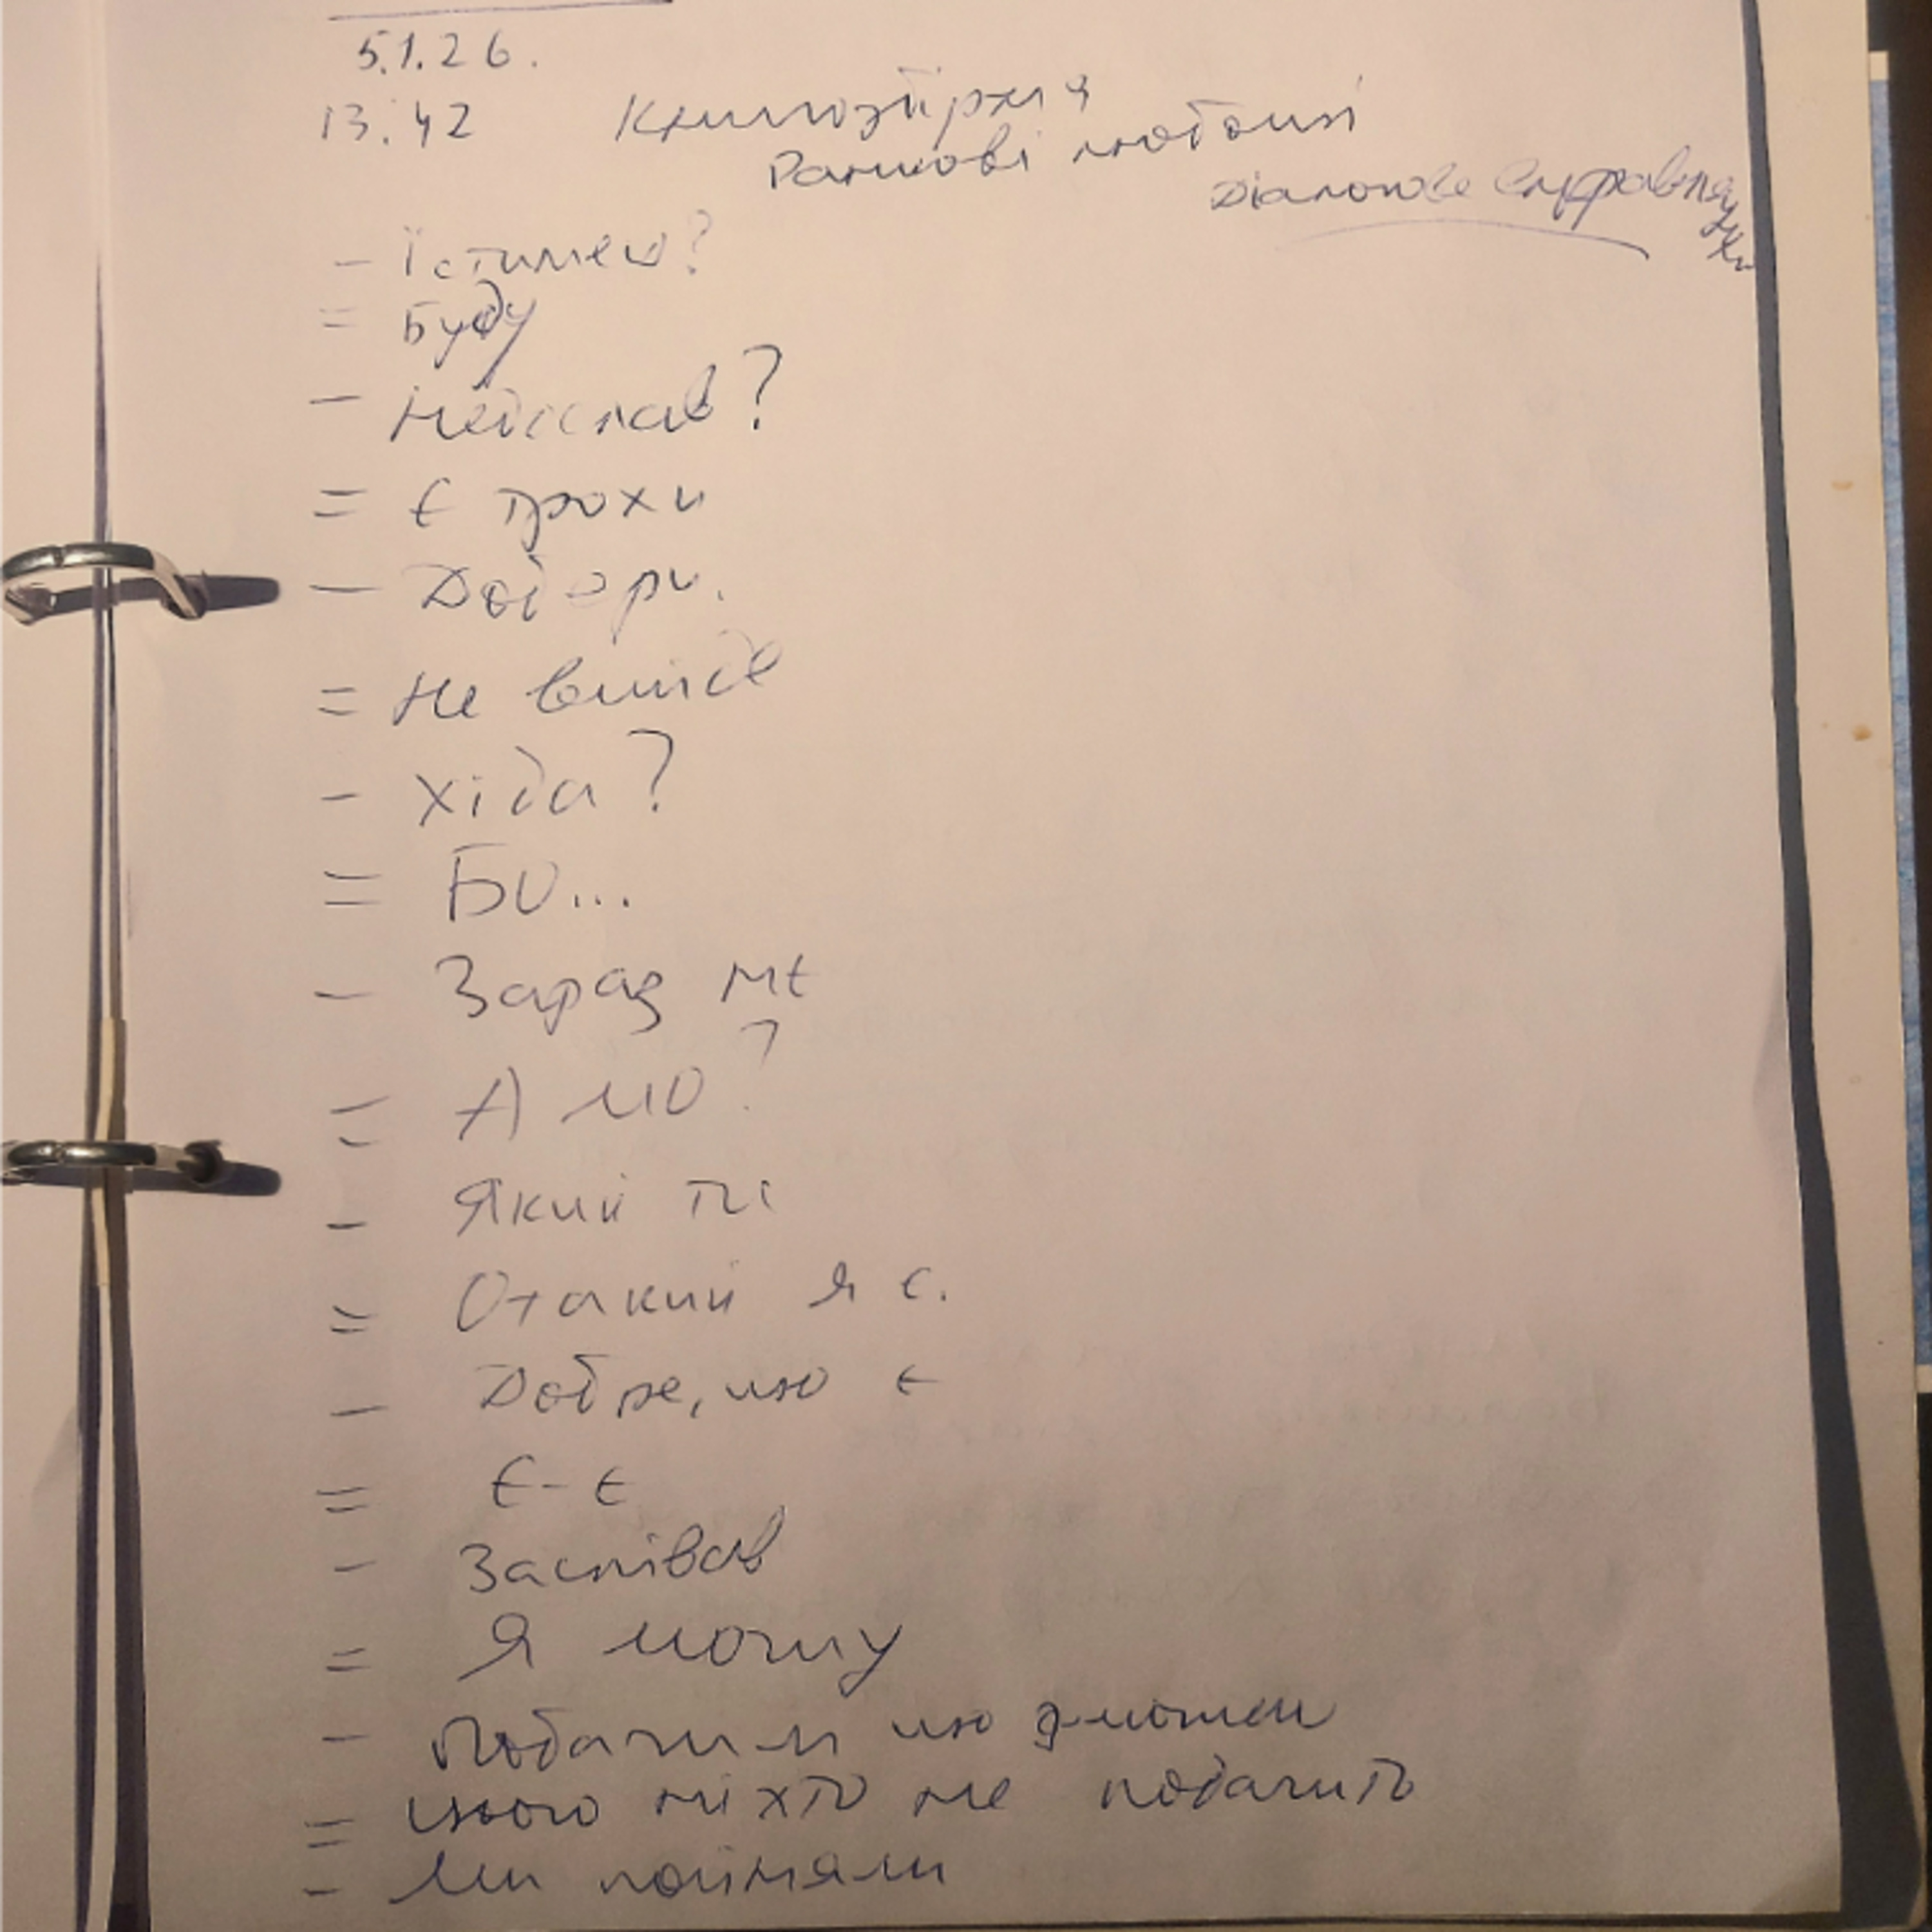 5.1.26.
13.42 Книгозбірня
Ранкові любощі
Діалогове
– Їстимеш?
= Буду
– Недоспав?
= Є трохи
– Добери.
= Не вийде
– Хіба?
= Бо...
– Зараз не
= А що?
– Який ти
= Отакий я є.
– Добре, що є
= Є-є
– Заспівав
= Я можу
– Побачим що зможеш
= Цього ніхто не побачить
– Ми поймали